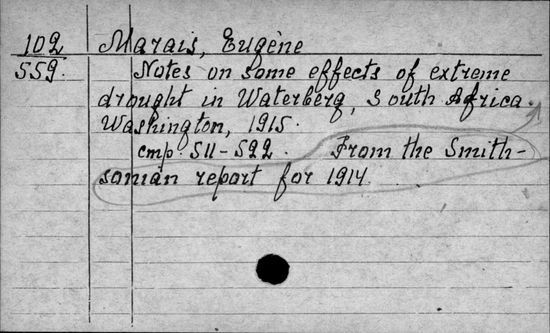 102 Marais, Eugène
559. Notes on some effects of extreme
drought in Waterberg, South Africa.
Washington, 1915.
стр. 511-522. From the Smith-
sonian report for 1914